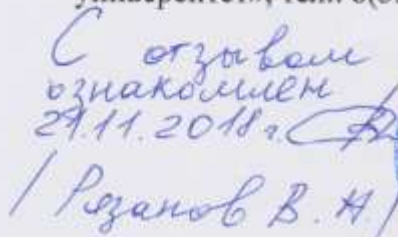 С отзывом
ознакомлен
21.11.2018 г.
/ Рязанов В. Н. /